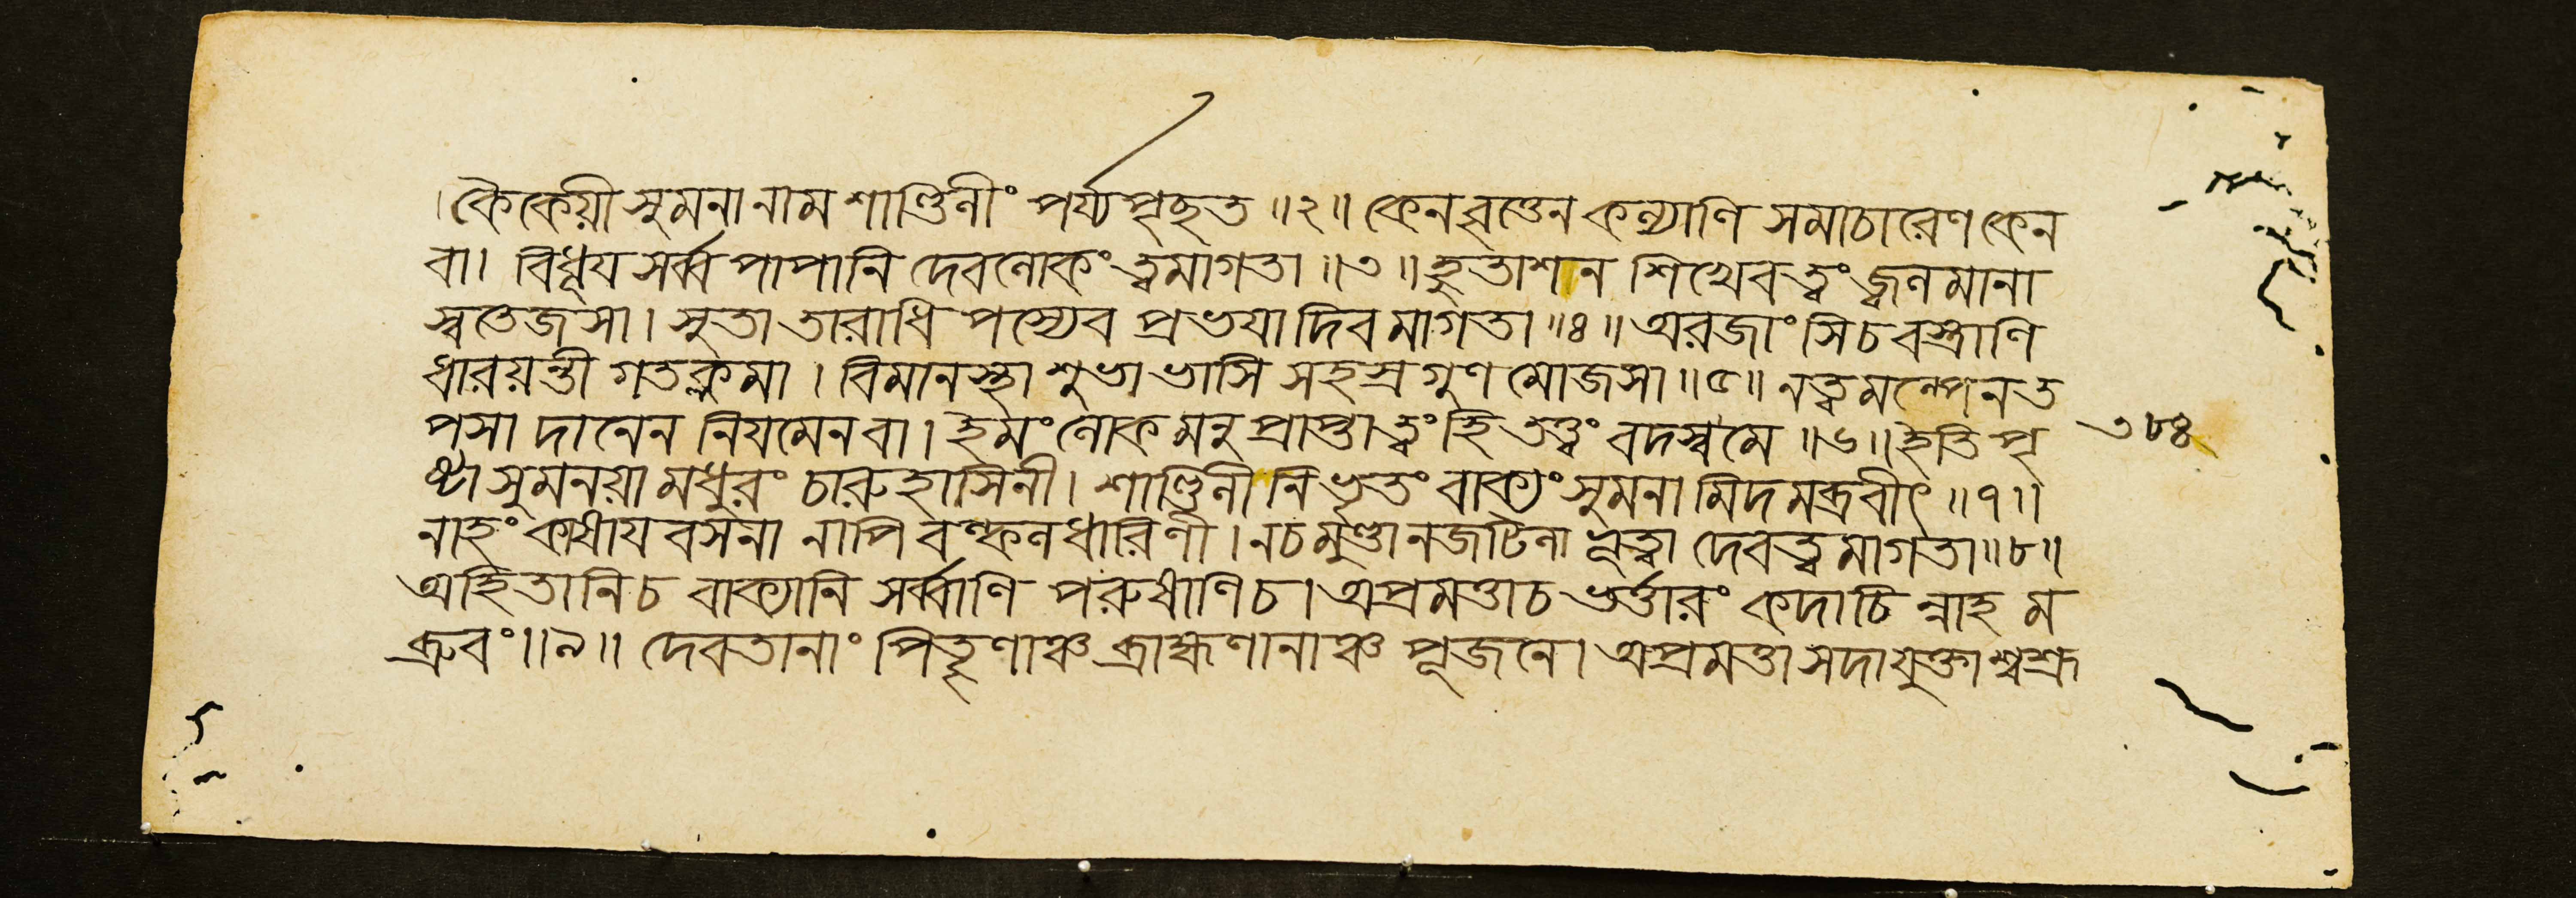 ।কৈকেয়ী সুমনা নাম শাণ্ডিলীং পর্য্যপৃছত ॥২॥ কেন ব্রতেন কল্যাণি সমাচারেণ কেন
বা। বিধূয সর্ব্ব পাপানি দেবলোকং ত্বমাগতা ॥৩॥ হুতাশন শিখেব ত্বং জ্বলমানা
স্বতেজসা। সুতা তারাধি পস্যেব প্রভযা দিব মাগতা ॥৪॥ অরজাংসি চ বস্ত্রাণি
ধারয়ন্তী গতক্লমা। বিমানস্থা শুভা ভাসি সহস্র গুণ মোজসা ॥৫॥ নত্বমল্পেন ত
পসা দানেন নিযমেন বা। ইমং লোক মনু প্রাপ্তা ত্বং হি তত্ত্বং বদস্ব মে ॥৬॥ ইতি পৃ
৩৮৪
ষ্টা সুমনয়া মধুরং চারুহাসিনী। শাণ্ডিলী নিভৃতং বাক্যং সুমনা মিদ মব্রবীৎ ॥৭॥
নাহং কাষায বসনা নাপি বল্কল ধারিণী। ন চ মুণ্ডা ন জটিলা ভূত্বা দেবত্ব মাগতা ॥৮॥
অহিতানি চ বাক্যানি সর্ব্বাণি পরুষাণি চ। অপ্রমত্তা চ ভর্ত্তারং কদাচি ন্নাহ ম
ব্রুবং ॥৯॥ দেবতানাং পিতৄণাঞ্চ ব্রাহ্মণানাঞ্চ পূজনে। অপ্রমত্তা সদা যুক্তা শ্বশ্রূ